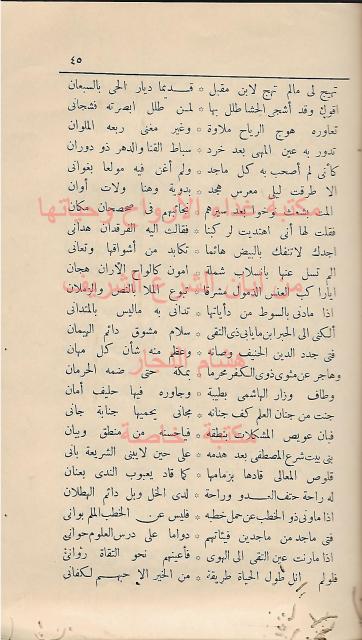 ٤٥
تهيج لى مالم تهج لابن مقبل * قديما ديار الحى بالسبعان
اقول وقد أشجى الحشا طلل بها * لمن طلل ابصرته فشجانى
تعاوره هوج الرياح ملاوة * وغير مغنى ربعه الملوان
تدور به عين المهى بعد خرد * سباط القنا والدهر ذو دوران
كأنى لم أصحب به كل ماجد * ولم أغن فيه مولعا بغوانى
الا طرقت ليلى معرس هجد * بدوية وهنا ولات أوان
فقلت لها أنى اهتديت لركبنا * فقالت اليه الفرقدان هدانى
اجدك لاتنفك بالبيض هائما * تكابد من أشواقها وتعانى
الم تسل عنها بانسلاب شملة * امون كالواح الاران هجان
اذا مادنى بالسوط من دأياتها * تدانى به ماليس بالمتدانى
ألكنى الى الحبر ابن مابابى ذى التقى * سلام مشوق دائم الهيمان
فتى جدد الدين الحنيف وصانه * وعظم منه شأن كل مهان
وهاجر عن مثوى ذوى الكفر محرما * بمكة حتى ضمه الحرمان
وطاف وزار الهاشمى بطيبة * وجاوره فيها حليف أمان
جنت من جنان العلم كف جنانه * مجانى يحميها جنابة جانى
فبان عويص المشكلات بنطقه * فياحسنه من منطق وبيان
بنى بيت شرع المصطفى بعد هدمه * على حين لايبنى الشريعة بانى
قلوص المعالى قادها بزمامها * كما قاد يعبوب الندى بعنان
له راحة حتف العدو وراحة * لدى المحل وبل دائم الهطلان
اذا ماونى ذو الخطب عن حمل خطبه * فليس عن الخطب الملم بوانى
فتى ماجد من ماجدين فيئاتهم * دواما على درس العلوم حوانى
اذا مارنت عين التقى الى الهوى * فأعينهم نحو التقاة روانى
فلولم انل طول الحياة طريقة * من الخير الا حبهم لكفانى
مكتبة غذاء الارواح وحياتها
من لبان الشرع الشريف
هشام النجار
مكتبة خاصة